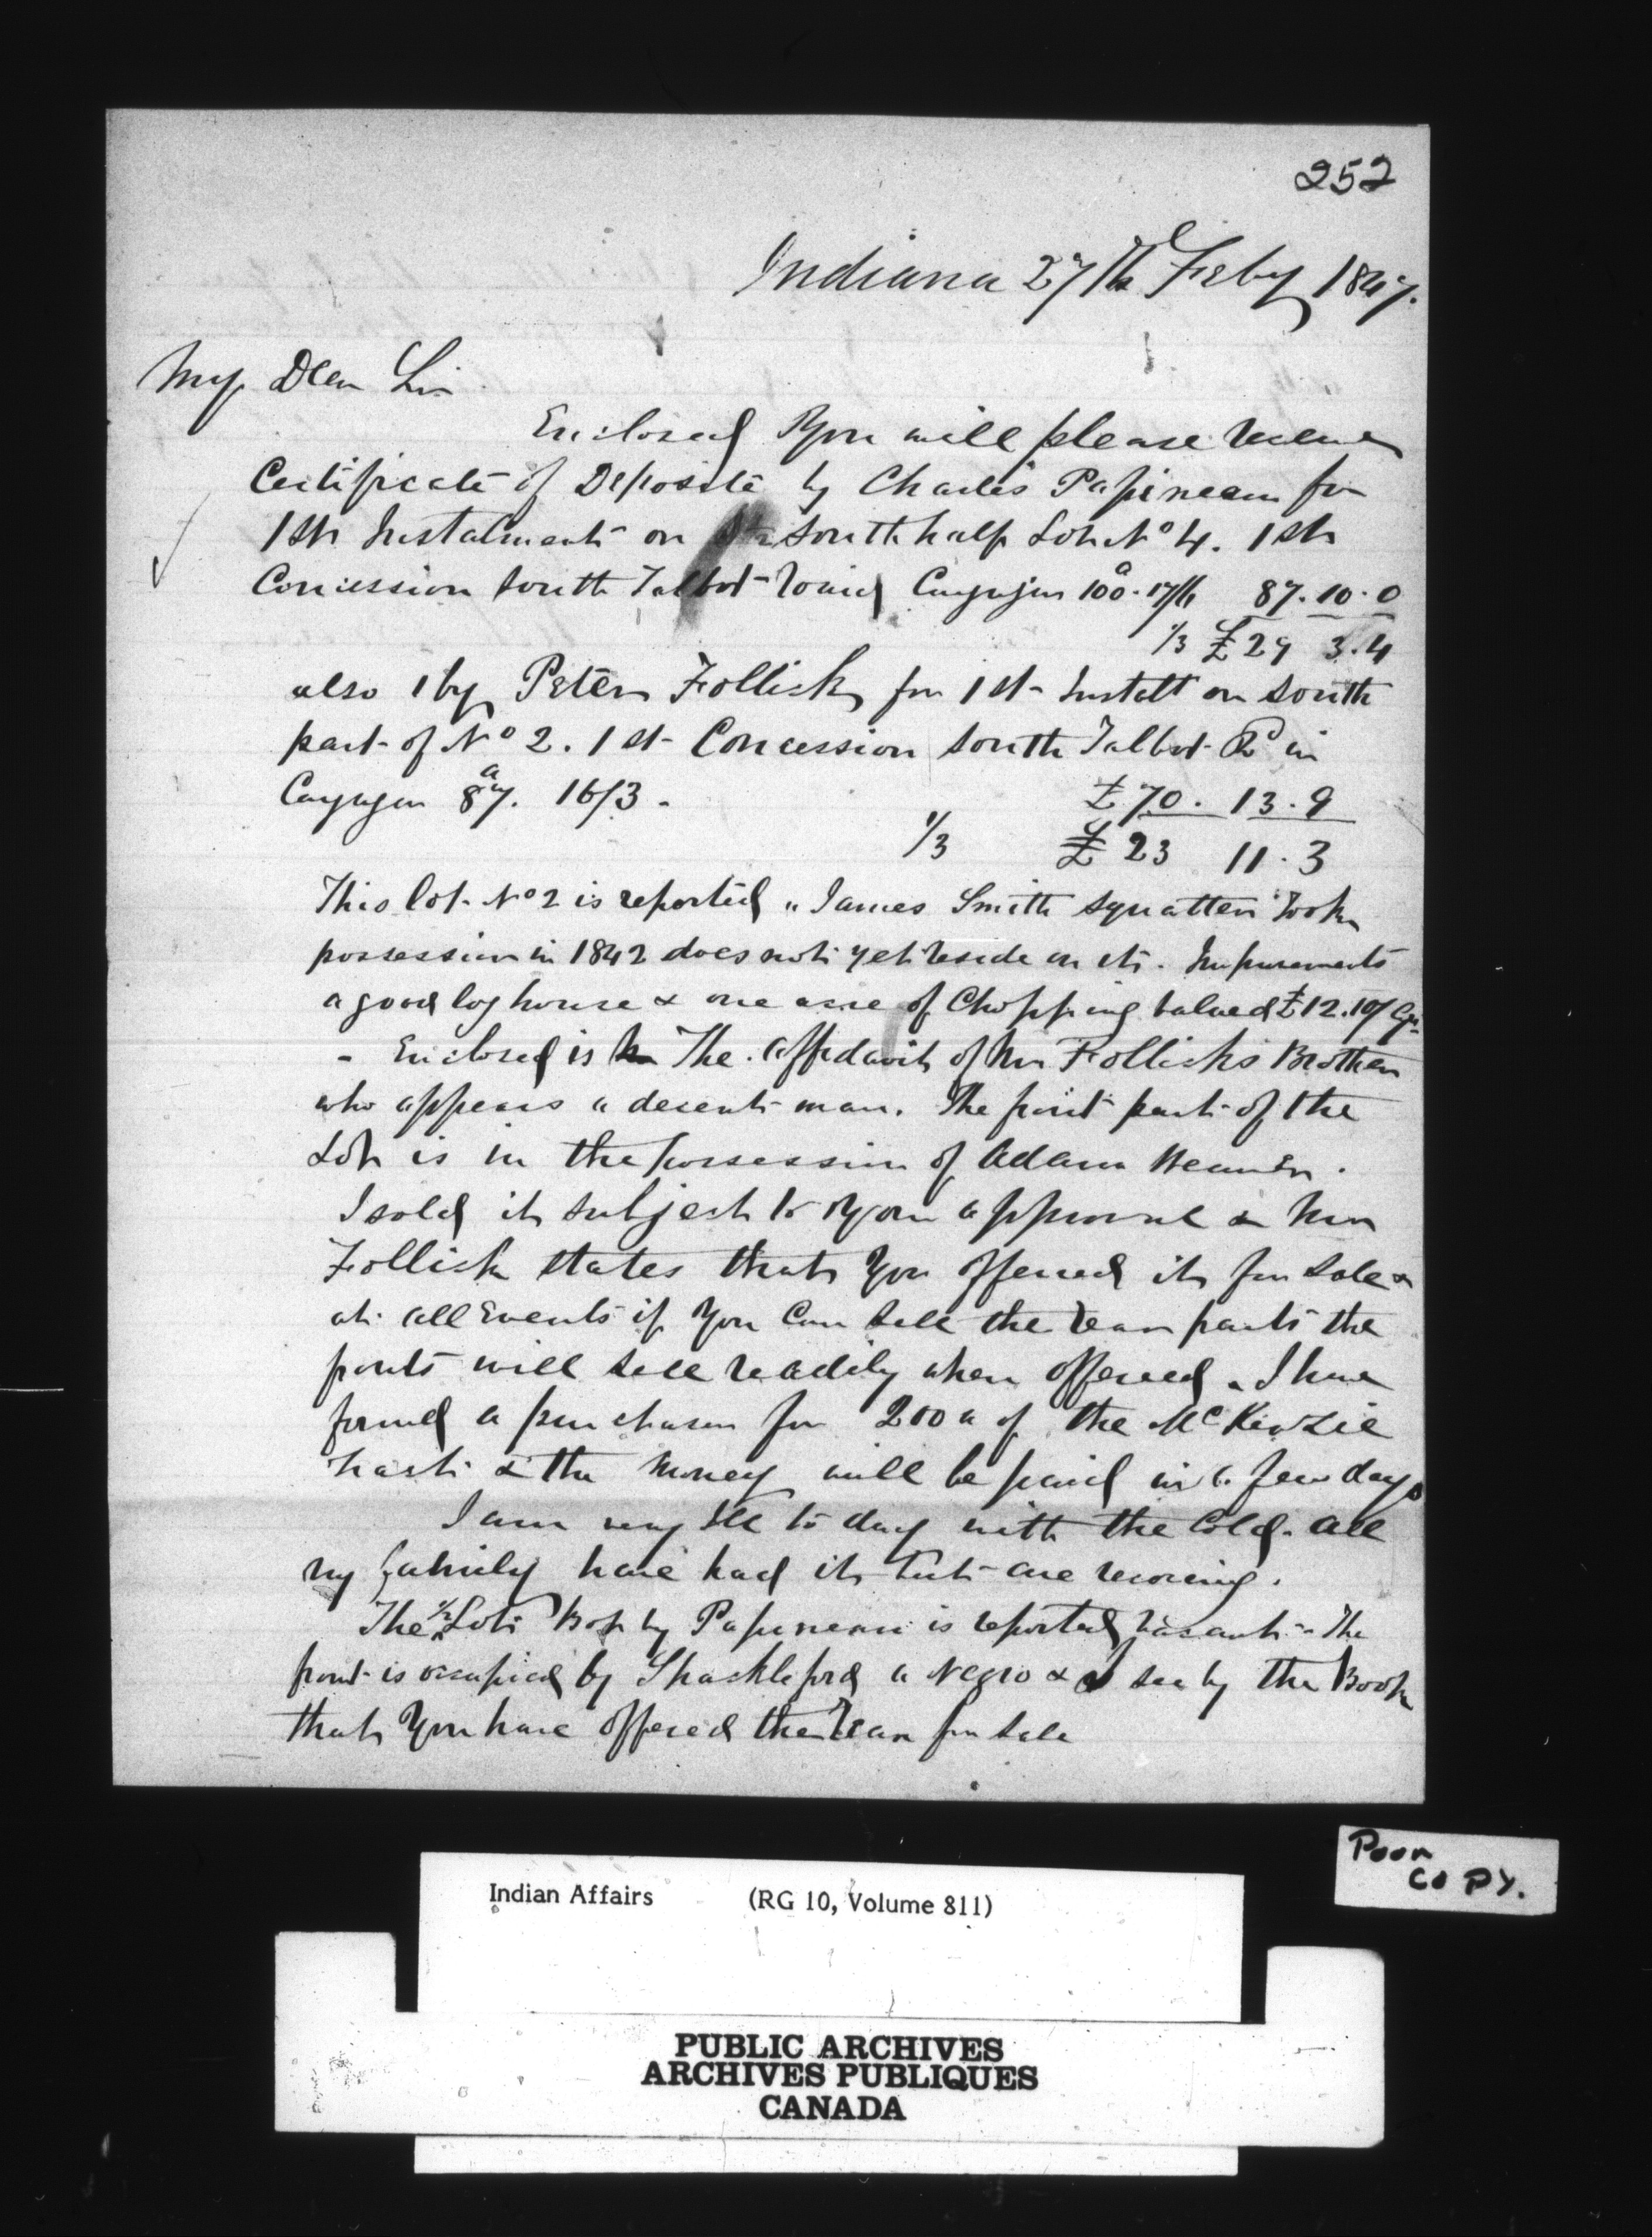 252
Indiana 27th Feby 1847.
My Dear Sir
Enclosed You will please receive
Certificate of Deposite by Charles Papineau for
1st Instalment on the south half Lot No 4. 1st
Concession South Talbot road Cayuga 100a. 17/6 87.10.0
1/3 £29 3.4
also 1 by Peter Follick for 1st Instalt on South
part of No 2. 1st Concession South Talbot Rd in
Cayuga 87a. 16/3. £70. 13.9
1/3 £23 11.3
This lot No 2 is reported "James Smith squatter took
possession in 1842 does not yet reside on it. Improvements
a good log house & one acre of Chopping valued £12.10/ Cy-
- Enclosed is The affidavit of Mr Follicks Brother
who appears a decent man. The front part of the
Lot is in the possession of Adam Weaver.
I sold it subject to Your approval & Mr
Follick states that You offered it for sale &
at all Events if You Can sell the rear parts the
fronts will sell readily when offered. I have
found a purchaser for 200a of the McKenzie
tract & the Money will be paid in a few days
I am very Ill to day with the Cold. All
my family have had it but are recovering.
The 1/2 Lot Bot by Papineau is reported vacant - The
front is occupied by Shackleford a Negro & I see by the Book
that You have offered the Rear for sale
Poor
COPY.
Indian Affairs (RG 10, Volume 811)
PUBLIC ARCHIVES
ARCHIVES PUBLIQUES
CANADA